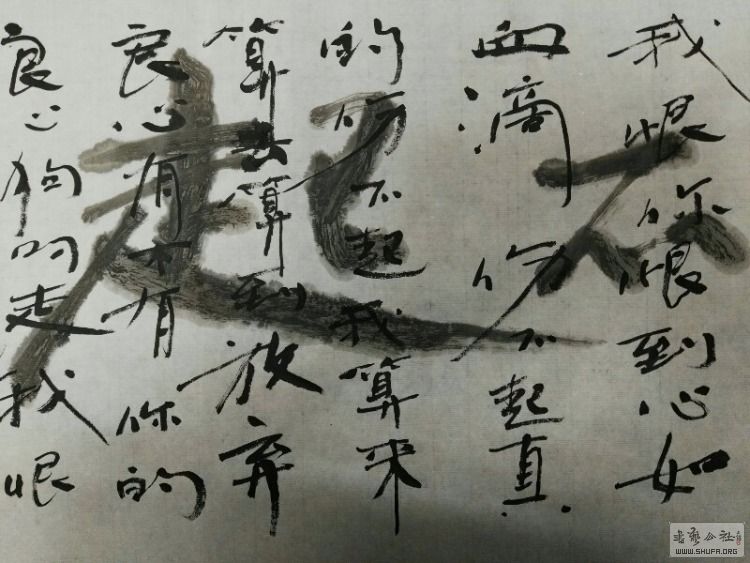 我恨你恨到心如
血滴伤不起真
的伤不起我算来
算去算到放弃
良心有木有你的
良心狗叼走我恨
不起
书艺公社
WWW.SHUFA.ORG